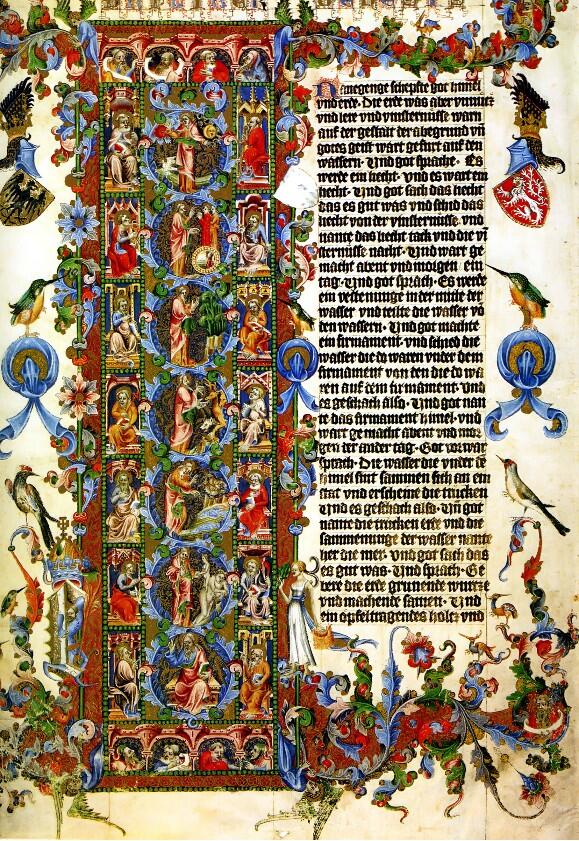 Nanegenge schepfte got himel
vnd erde · Die erde was aber vnnucz
vnd lere vnd vinsternisse warn
auf der gestalt der abegrund vn̄
gotes geist wart gefurt auf den
wassern · Vnd got sprache · Es
werde ein liecht · Vnd es wart ein
liecht · Vnd got sach das liecht
das es gut was vnd schid das
liecht von der vinsternisse · vnd
nante das liecht tack vnd die vi
sternisse nacht · Vnd wart ge
macht abent vnd morgen · ein
tag · Vnd got sprach · Es werde
ein vestenunge in der mitte der
wasser vnd teilte die wasser vō
den wassern · Vnd got machte
ein firmament · vnd schied die
wasser die do waren vnder dem
firmament von den die do wa
ren auf dem firmament · Vnd
es geschach also · Vnd got nan
te das firmament himel · vnd
wart gemacht abent vnd mor
gen der ander tag · Got vorwar
sprach · Die wasser die vnder dē
himel sint sammen sich an ein
stat vnd erscheine die trucken
Vnd es geschach also · Vn̄ got
nante die trucken erde vnd die
sammenunge der wasser nante
her die mer · Vnd got sach das
es gut was · Vnd sprach · Ge
bere die erde grunende wurcze
vnd machende samen · Vnd
ein opfeltragendes holcz vnd